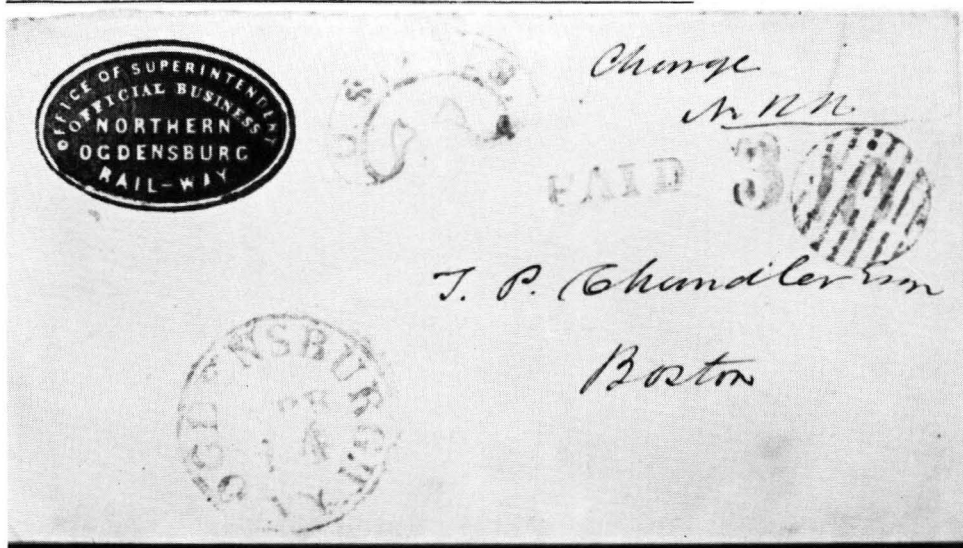 OFFICE OF SUPERINTENDENT
OFFICIAL BUSINESS
NORTHERN
OGDENSBURG
RAIL-WAY
Charge
N. RR.
PAID 3
PAID
T. P. Chandler Esq
Boston
OGDENSBURGH
N.Y.
APR
4